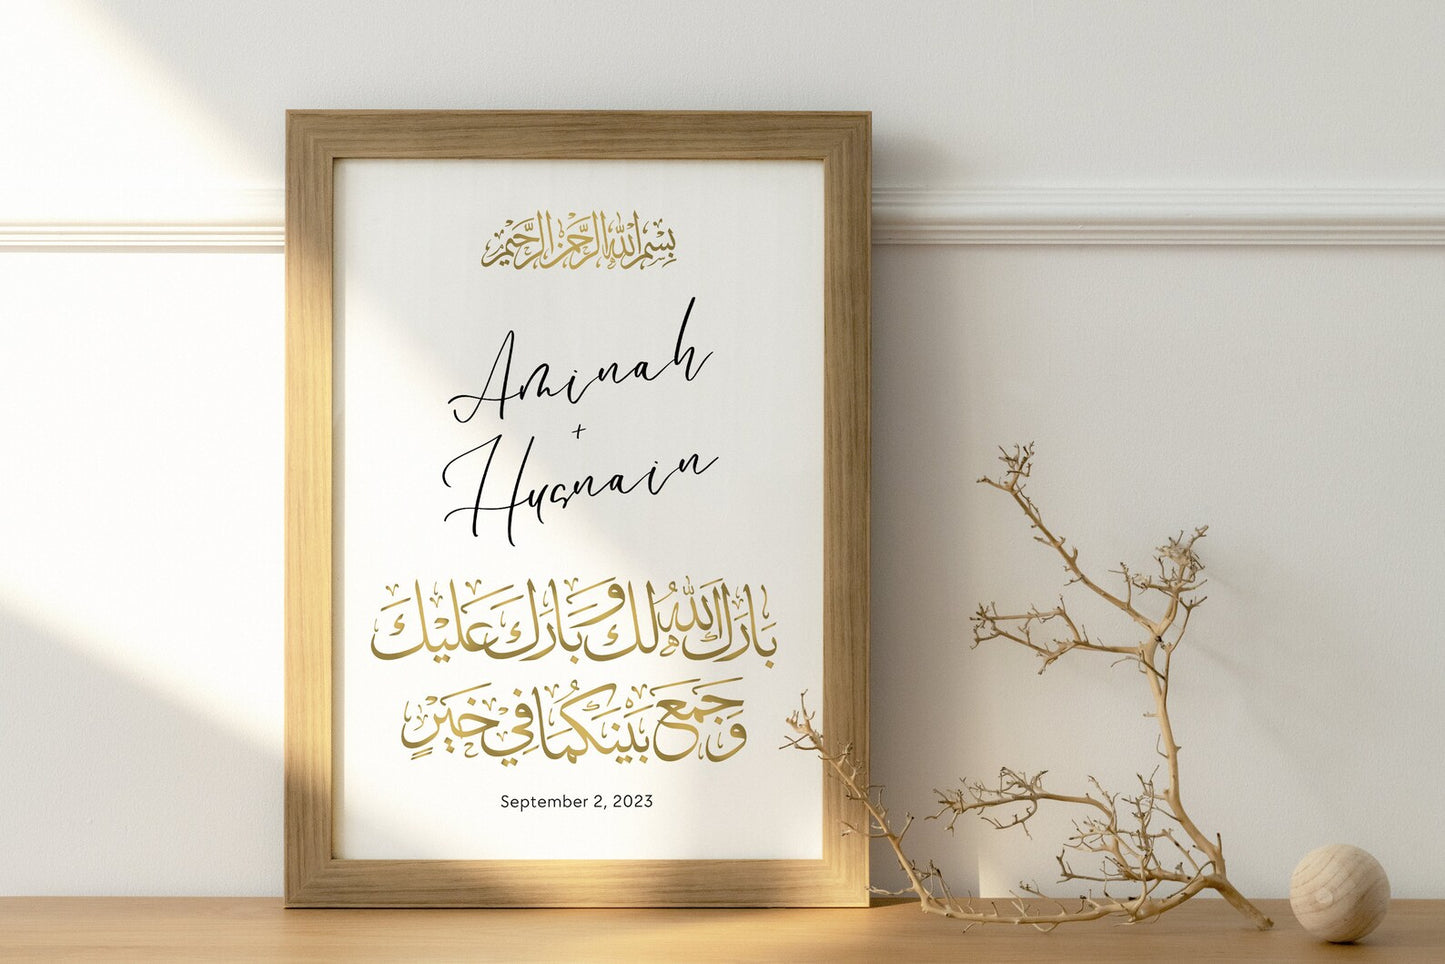 بِسْمِ اللهِ الرَّحْمٰنِ الرَّحِيْمِ
Aminah
+
Husnain
بَارَكَ اللهُ لَكَ وَبَارَكَ عَلَيْكَ
وَجَمَعَ بَيْنَكُمَا فِيْ خَيْرٍ
September 2, 2023